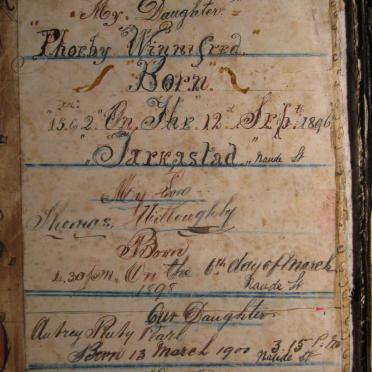 "My Daughter"
"Phoeby Winnifred."
"Born"
"15.6.2" On The "12th Sept 1896
"Tarkastad" Naude St
My Son
Thomas, Willoughby
Born
4.30 pm. On the 6th day of March
1898 Naude St
Our Daughter
Autrey Ruby Pearl
Born 13 March 1900 3.15 P.M
Naude St